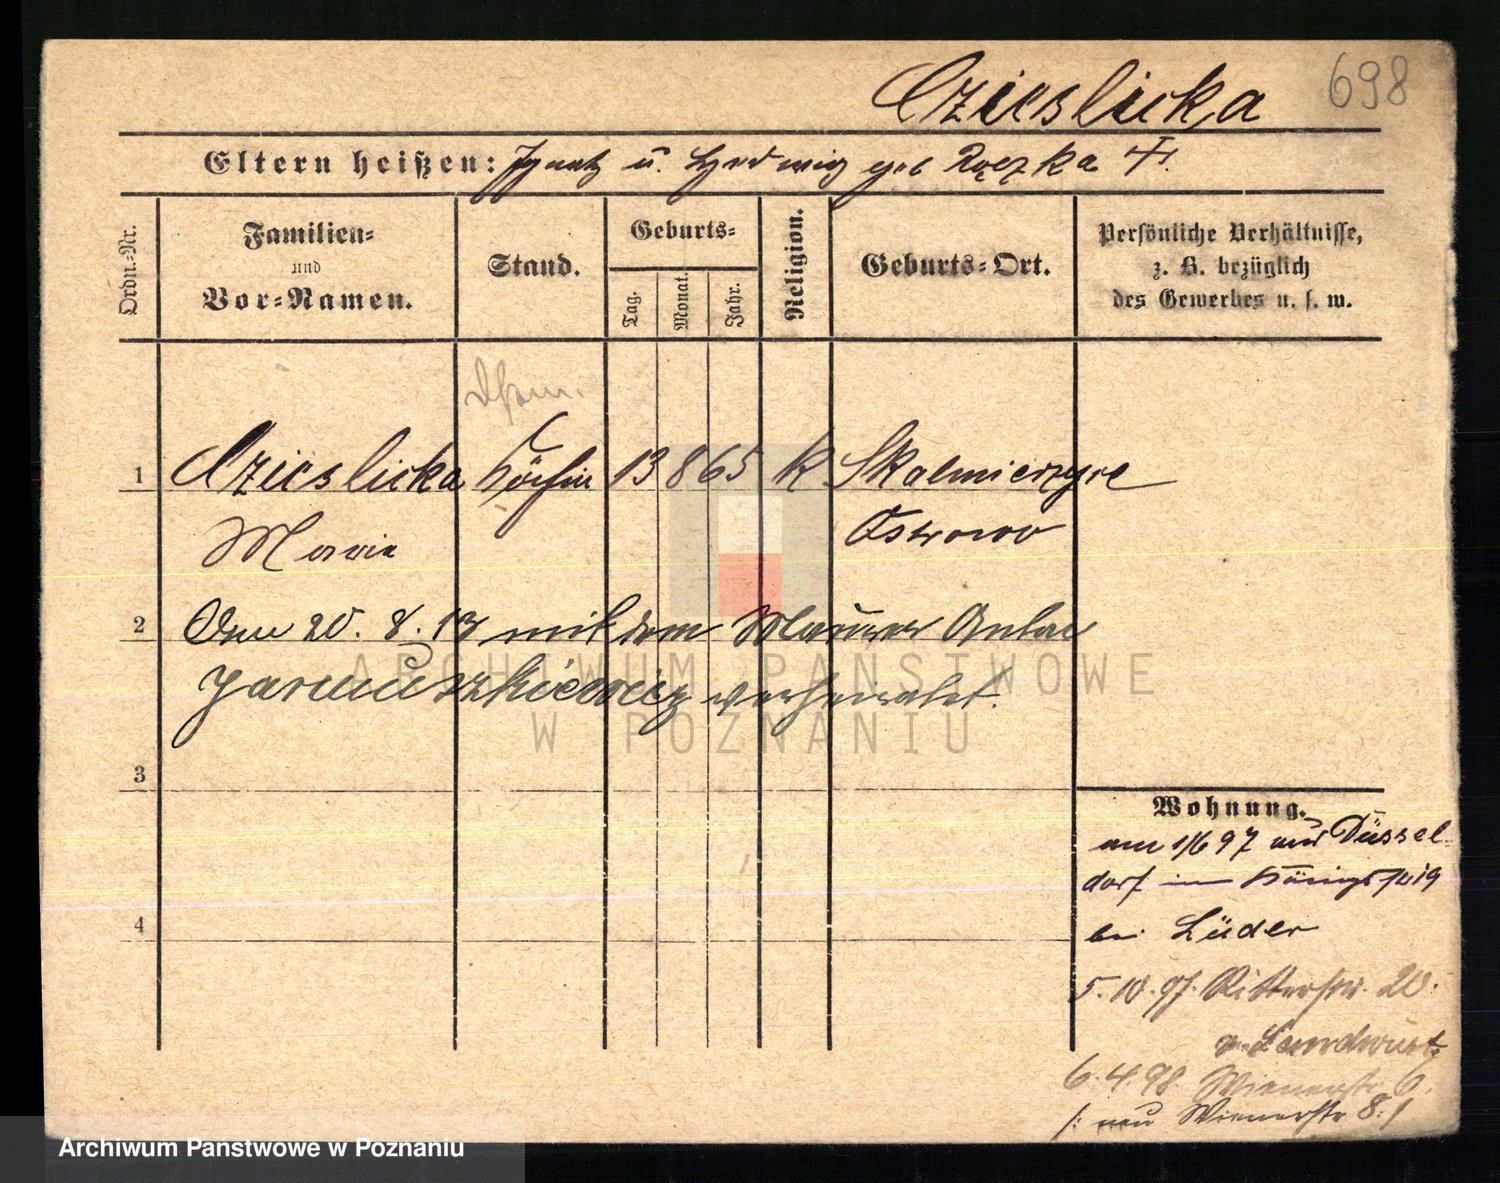 Czieslicka 698
Eltern heißen: Ignatz u. Hedwig geb Rączka †.
Ordn.-Nr.
Familien-
und
Vor-Namen.
Stand.
Geburts-
Tag.
Monat.
Jahr.
Religion.
Geburts-Ort.
Persönliche Verhältnisse,
z. B. bezüglich
des Gewerbes u. s. w.
1 Czieslicka Köchin 13 8 65 k Skalmierzyce
Marie Ostrowo
2 Am 20. 8. 13 mit dem Maurer Anton
Jarmuszkiewicz verheiratet.
3
4
Wohnung.
am 1/6 97 aus Düssel
dorf im
bei Lüder
5. 10. 97. Ritterstr. 20.
6. 4. 98 Wienerstr 6.
/: neu Wienerstr 8 :/
ARCHIWUM PAŃSTWOWE
W POZNANIU
Archiwum Państwowe w Poznaniu